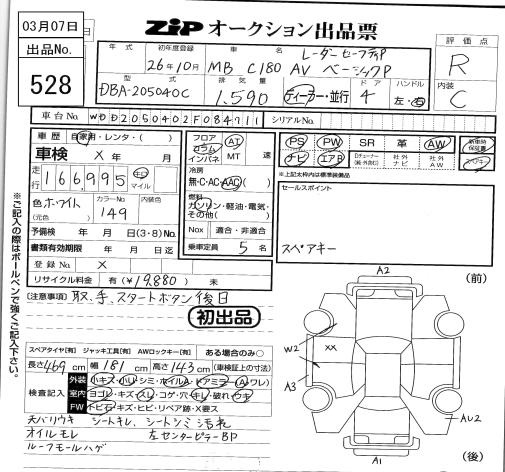 03月07日
ZIP オークション出品票
出品No.
528
年式
初年度登録
26年10月
車名
MB C180
レーダーセーフティP
AV ベーシックP
評価点
R
型式
DBA-205040C
排気量
1.590
ディーラー・並行
ドア
4
ハンドル
左・右
内装
C
車台No.
WDD2050402F084711
シリアルNo.
車歴
自家用・レンタ・( )
車検
X 年 月
走行
166,995
キロ
マイル
色 ホワイト
(元色)
カラーNo
149
内装色
予備検 年 月 日(3・8)No.
書類有効期限 年 月 日迄
登録No
X
リサイクル料金 有(¥19,880) 未
フロア
コラム
インパネ
AT
MT 速
冷房
無・C・AC・AAC
燃料
ガソリン・軽油・電気・
その他( )
Nox 適合・非適合
乗車定員 5 名
PS PW SR 革 AW
新車時保証書
ナビ エアB
Dチューナー
社外ナビ
社外AW
スペアキ
※上記太枠内は標準装備品
セールスポイント
スペアキー
(注意事項) 取、手、スタートボタン後日
初出品
スペアタイヤ[有] ジャッキ工具[有] AWロックキー[有] ある場合のみ○
長さ 469 cm 幅 181 cm 高さ 143 cm (車検証上の寸法)
検査記入
外装 小キズ・凹・シミ・ホイル・ドアミラー(ワレ)
室内 ヨゴレ・キズ・スレ・コゲ・穴・キレ・破れ・ウキ
FW トビ石・キズ・ヒビ・リペア跡・X要ス
天バリウキ シートキレ、シートシミ汚れ
オイルモレ 左センターピラーBP
ルーフモールハゲ
※ご記入の際はボールペンで強くご記入下さい。
A2
(前)
W2
XX
A3
AU2
A1
(後)